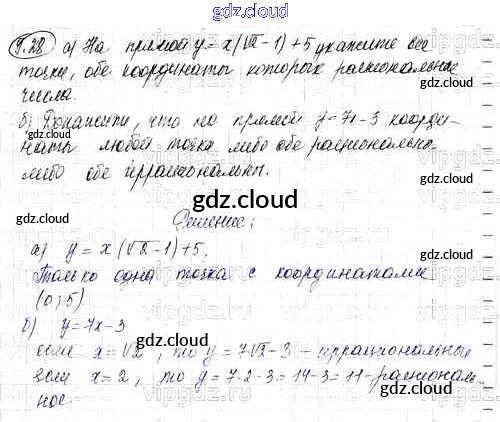 gdz.cloud
4.28 а) На прямой y = x(√2 - 1) + 5 укажите все
точки, обе координаты которых рациональные
числа.
gdz.cloud
б) Докажите, что на прямой y = 7x - 3 коорди-
gdz.cloud
наты любой точки либо обе рациональны,
либо обе иррациональны.
gdz.cloud
gdz.cloud
Решение:
gdz.cloud
а) y = x(√2 - 1) + 5.
gdz.cloud
Только одна точка с координатами
(0; 5)
gdz.cloud
б) y = 7x - 3
gdz.cloud
если x = √2, то y = 7√2 - 3 - иррациональные
если x = 2, то y = 7·2 - 3 = 14 - 3 = 11 - рациональ-
gdz.cloud
ное.
gdz.cloud